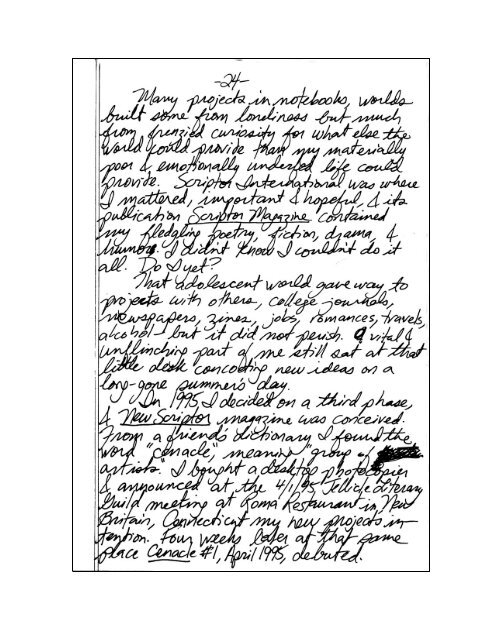 -24-
Many projects in notebooks, worlds
built some from loneliness but much
from frenzied curiosity for what else the
world could provide than my materially
poor & emotionally underfed life could
provide. Scriptor International was where
I mattered, important & hopeful, & its
publication Scriptor Magazine contained
my fledgling poetry, fiction, drama, &
humor. I didn't know I couldn't do it
all. Do I yet?
That adolescent world gave way to
projects with others, college journals,
newspapers, zines, jobs, romances, travels,
alcohol—but it did not perish. A vital &
unflinching part of me still sat at that
little desk concocting new ideas on a
long-gone summer's day.
In 1995 I decided on a third phase,
& New Scriptor magazine was conceived.
From a friend's dictionary I found the
word "cenacle," meaning "group of
artists." I bought a desktop photocopier
& announced at the 4/1/95 Jellicle Literary
Guild meeting at Roma Restaurant in New
Britain, Connecticut my new projects in-
tention. Four weeks later at that same
place Cenacle #1, April 1995, debuted.